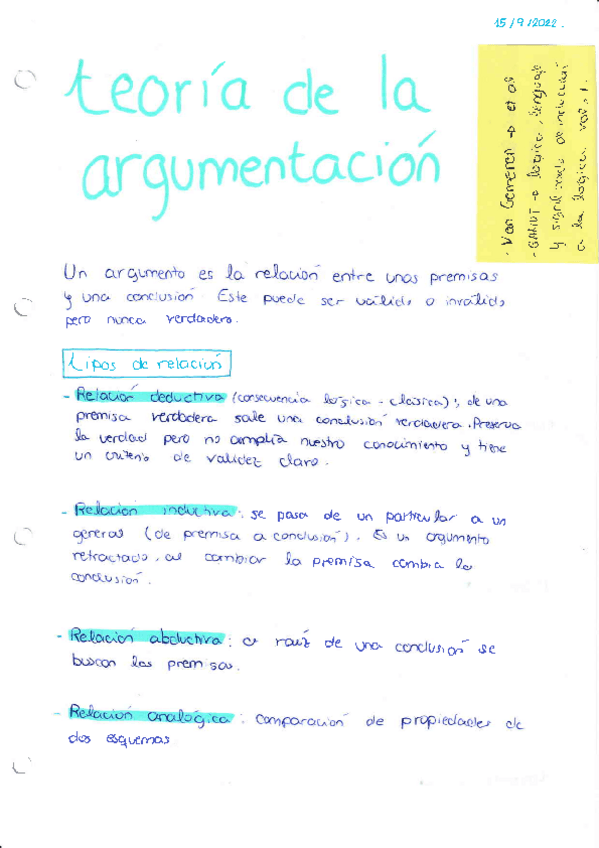 15/9/2022.
teoría de la
argumentación
· Van Eemeren → et al
- GAMUT → lógica, lenguaje
y significado de introducción
a la lógica vol. 1.
Un argumento es la relación entre unas premisas
y una conclusión. Este puede ser válido o inválido
pero nunca verdadero.
tipos de relación
- Relación deductiva (consecuencia lógica - clásica): de una
premisa verdadera sale una conclusión verdadera. Preserva
la verdad pero no amplía nuestro conocimiento y tiene
un criterio de validez claro.
- Relación inductiva: se pasa de un particular a un
general (de premisa a conclusión). Es un argumento
retractado, al cambiar la premisa cambia la
conclusión.
- Relación abductiva: a raíz de una conclusión se
buscan las premisas.
- Relación analógica: comparación de propiedades de
dos esquemas